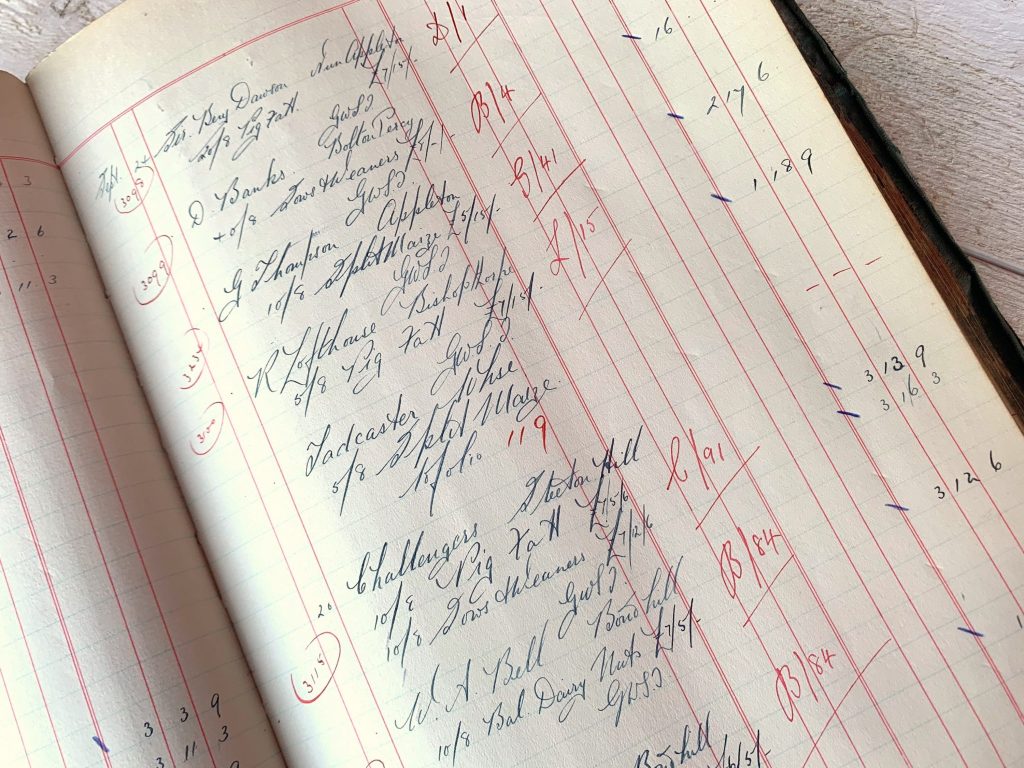 3
2 6
11 3
3 3 9
3 11 3
Sept. 24 Benj Dawson Nun Appleton
20/8 Pig FaH. £7/15/-
3098 GWSD D/1 16
D. Banks Bolton Percy
40/8 Sows & Weaners £7/-/-
3099 GWSD B/4 2 17 6
G Thompson Appleton
10/8 Split Maize £5/15/-
3234 GWSD G/41 1 18 9
R Lofthouse Bishopthorpe
5/8 Pig FaH £7/15/-
3100 GWSD L/15 - -
Tadcaster Whse
5/8 Split Maize
119
3 13 9
3 16 3
20 Challengers Steeton Hill
10/8 Pig FaH £7/5/6
10/8 Sows & Weaners £7/2/6
3115 GWSD. C/91 3 12 6
W. A. Bell Bowhill
10/8 Bal. Dairy Nuts £7/5/-
GWSD B/84 1
Bowhill
B/84